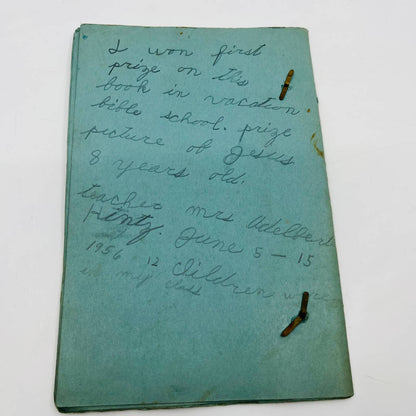 I won first
prize on this
book in vacation
bible school. prize
picture of Jesus
8 years old.
teacher mrs Adelbert
Hintz. June 5 - 15
1956 12 children were
in my class